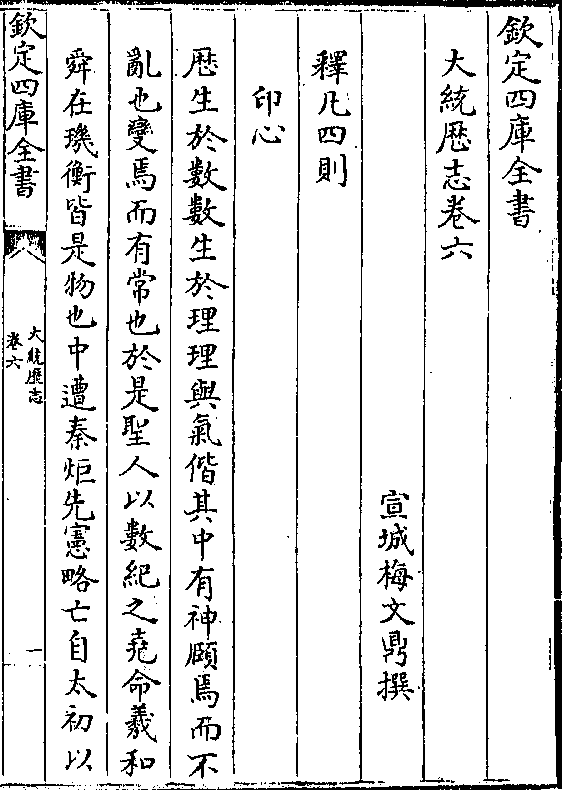 欽定四庫全書
大統厯志卷六
宣城梅文鼎撰
釋凡四則
印心
厯生於數數生於理理與氣偕其中有神頤焉而不
亂也變焉而有常也於是聖人以數紀之堯命羲和
舜在璣衡皆是物也中遭秦炬先憲略亡自太初以
欽定四庫全書
大統厯志
卷六
一